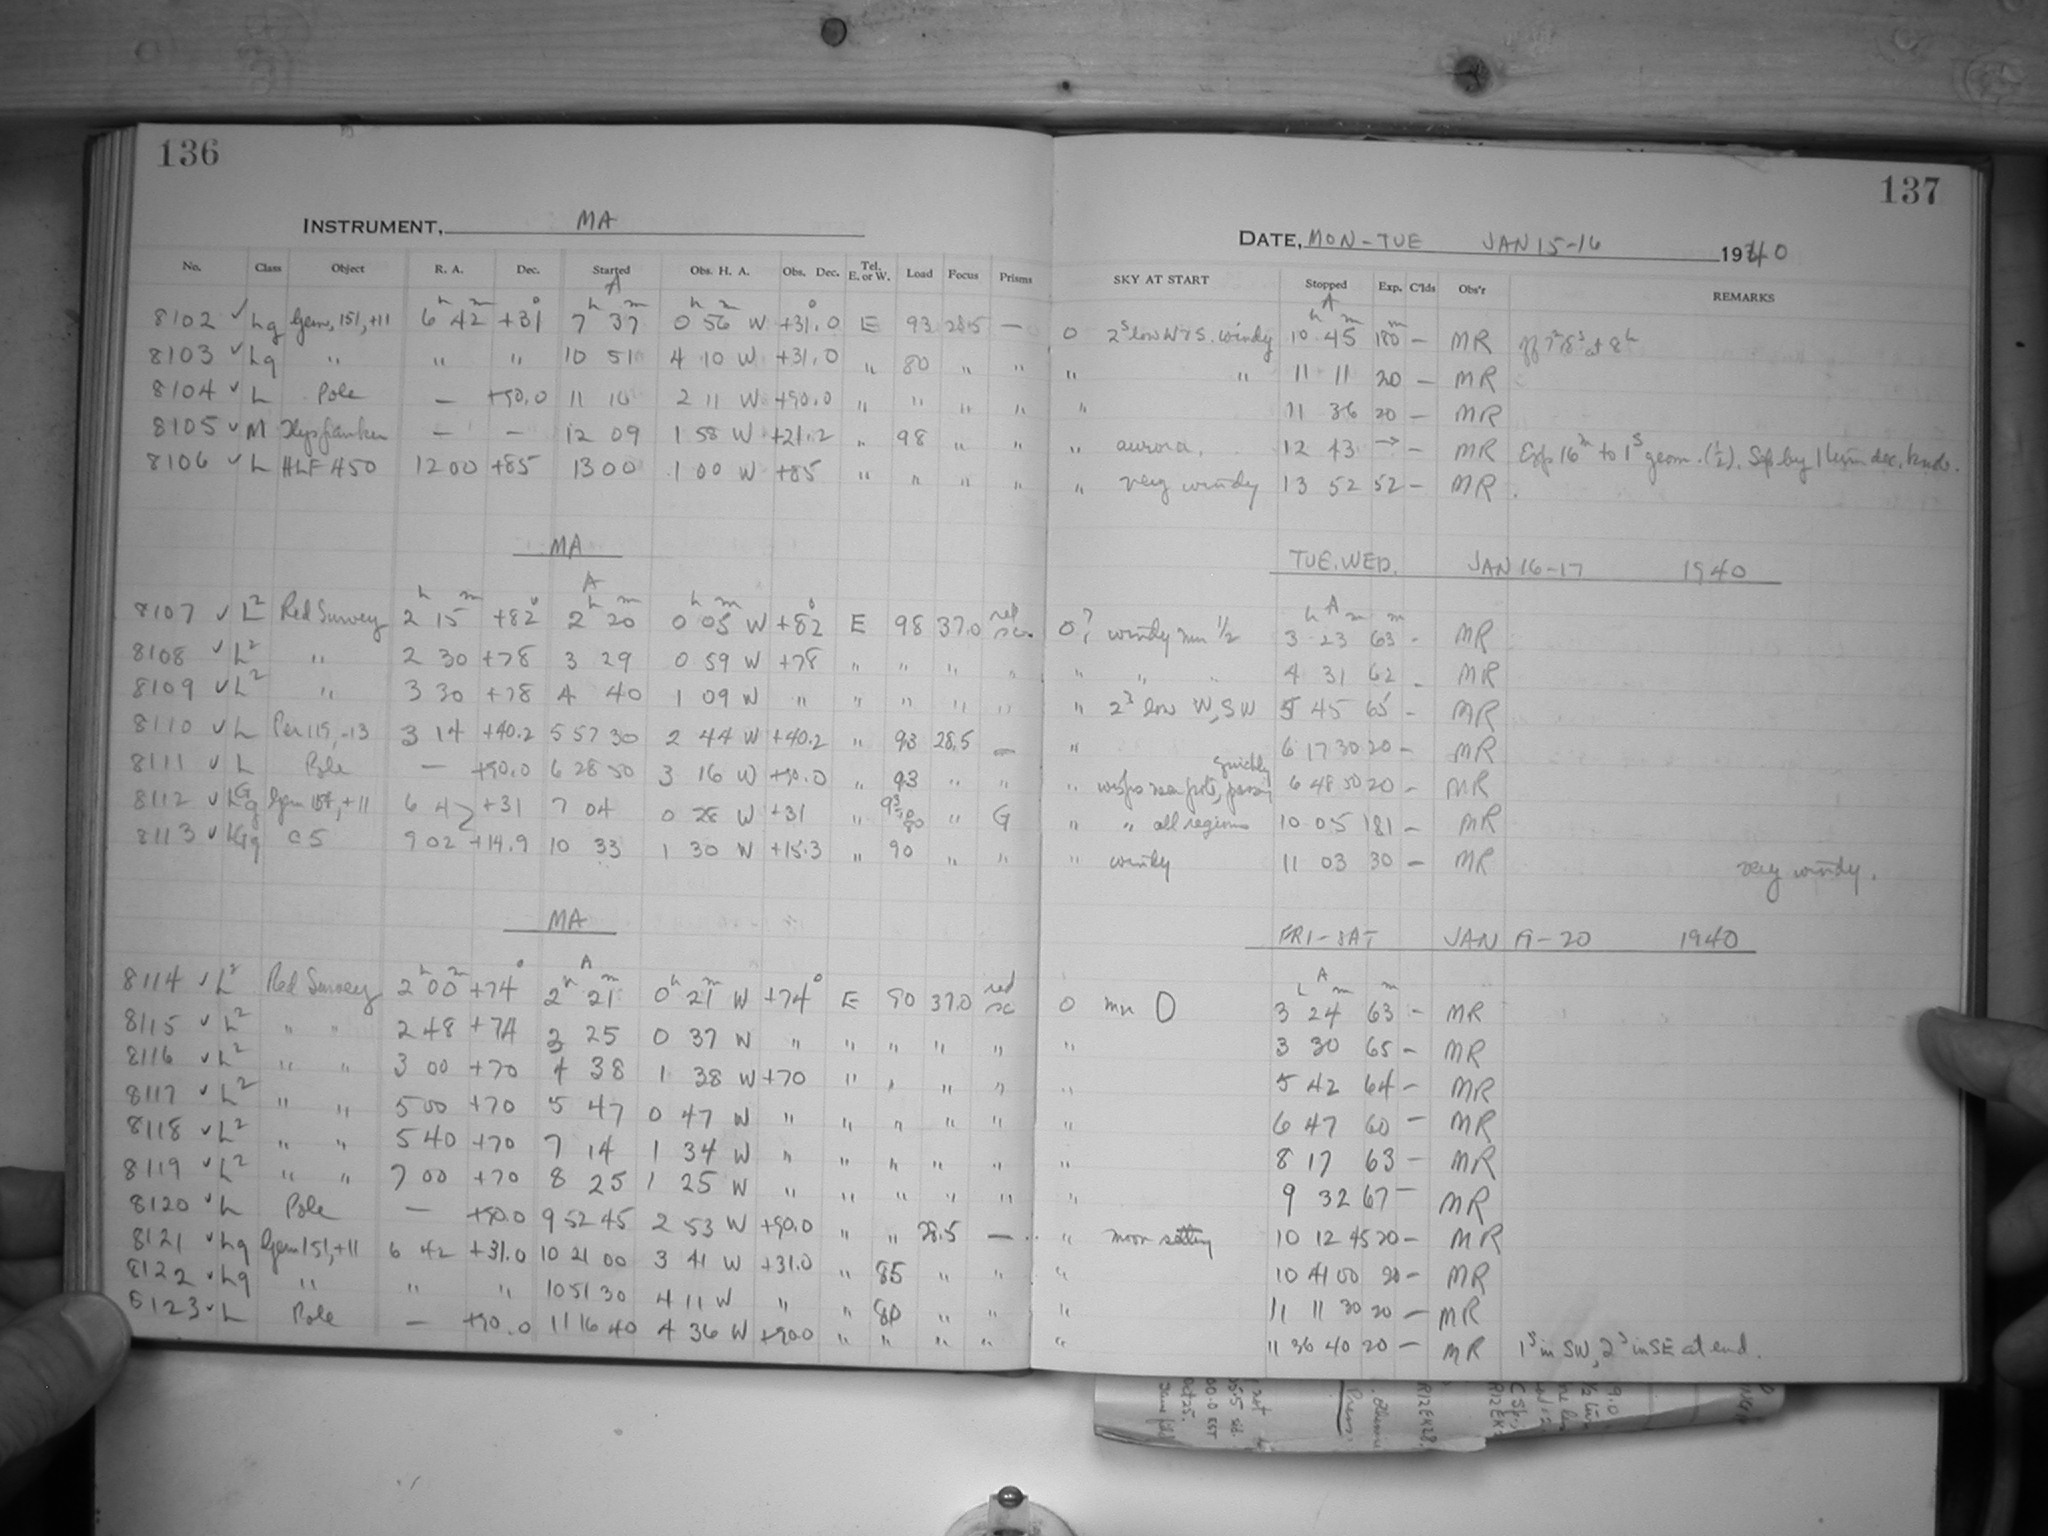 136
137
INSTRUMENT, MA
DATE, MON-TUE JAN 15-16 1940
No. Class Object R. A. Dec. Started Obs. H. A. Obs. Dec. Tel. E. or W. Load Focus Prisms SKY AT START Stopped Exp. C'lds Obs'r REMARKS
A A
h m ° h m h m ° h m m
8102 ✓ Lg Gem, 151, +11 6 42 +31 7 37 0 56 W +31.0 E 93 28.5 — 0 2s low W & S. windy 10 45 180 — MR at 8h
8103 ✓ Lg " " " 10 51 4 10 W +31.0 " 80 " " " " 11 11 20 — MR
8104 ✓ L Pole — +90.0 11 16 2 11 W +90.0 " " " " " 11 36 20 — MR
8105 ✓ M — — 12 09 1 58 W +21.2 " 98 " " " aurora. 12 43 → - MR Exp 16m to 1s geom. (½). Sep by 1 turn dec.
8106 ✓ L HLF 450 12 00 +85 13 00 1 00 W +85 " " " " " very windy 13 52 52 — MR
MA TUE. WED. JAN 16-17 1940
A h A m m
h m ° h m h m °
8107 ✓ L2 Red Survey 2 15 +82 2 20 0 05 W +82 E 98 37.0 red sc. 0? windy mn ½ 3 23 63 - MR
8108 ✓ L2 " 2 30 +78 3 29 0 59 W +78 " " " " " " " 4 31 62 - MR
8109 ✓ L2 " 3 30 +78 4 40 1 09 W " " " " " " 2s low W, SW 5 45 65 - MR
8110 ✓ L Per 115, -13 3 14 +40.2 5 57 30 2 44 W +40.2 " 93 28.5 — " 6 17 30 20 — MR
8111 ✓ L Pole — +90.0 6 28 50 3 16 W +90.0 " 93 " " " wisps near pole, passing quickly 6 48 50 20 - MR
8112 ✓ LGg Gem 151, +11 6 42 +31 7 04 0 28 W +31 " 93-80 " G " " all regions 10 05 181 — MR
8113 ✓ LGg C5 9 02 +14.9 10 33 1 30 W +15.3 " 90 " " " windy 11 03 30 — MR very windy.
MA FRI-SAT JAN 19-20 1940
A A
h m ° h m h m ° h m m
8114 ✓ L2 Red Survey 2 00 +74 2 21 0 21 W +74 E 90 37.0 red sc 0 mn 3 24 63 - MR
8115 ✓ L2 " " 2 48 +74 3 25 0 37 W " " " " " " 3 30 65 - MR
8116 ✓ L2 " " 3 00 +70 4 38 1 38 W +70 " " " " " 5 42 64 — MR
8117 ✓ L2 " " 5 00 +70 5 47 0 47 W " " " " " " 6 47 60 — MR
8118 ✓ L2 " " 5 40 +70 7 14 1 34 W " " " " " " 8 17 63 — MR
8119 ✓ L2 " " 7 00 +70 8 25 1 25 W " " " " " " 9 32 67 — MR
8120 ✓ L Pole — +90.0 9 52 45 2 53 W +90.0 " " 28.5 — " moon setting 10 12 45 20 — MR
8121 ✓ Lg Gem 151, +11 6 42 +31.0 10 21 00 3 41 W +31.0 " 85 " " " 10 41 00 20 — MR
8122 ✓ Lg " " " 10 51 30 4 11 W " " 80 " " " 11 11 30 20 — MR
8123 ✓ L Pole — +90.0 11 16 40 4 36 W +90.0 " " " " " 11 36 40 20 — MR 1s in SW, 2s in SE at end.